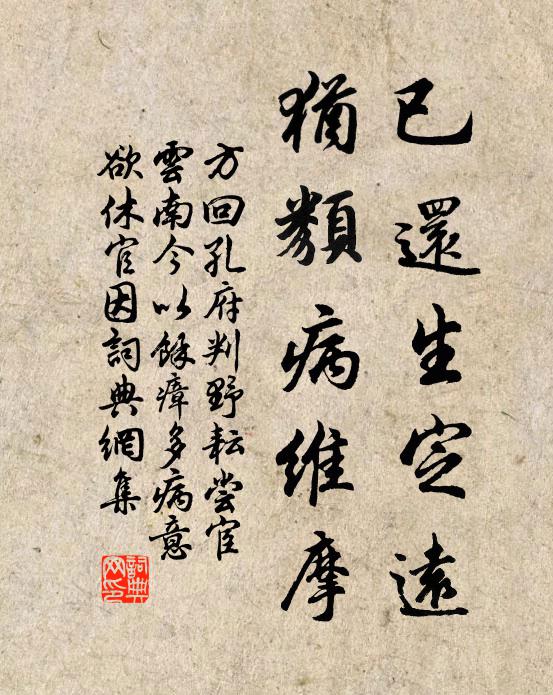 已還生定遠
猶類病維摩
方回孔府判野耘嘗宦
雲南今以餘瘴多病意
欲休官因詞典網集
詞典網印